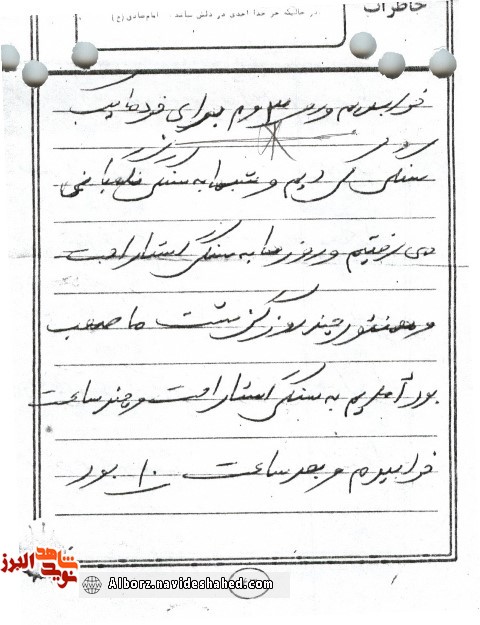 خاطرات
در حالیکه جز خدا احدی در دلش نباشد. امام صادق (ع)
خوابیدیم و در ۳ دوم برای خود
سنگر می و شبها به سنگر نگهبانی
می رفتیم و روزها به سنگر استراحت
و همینطور چند روز گذشت ما صبح
بود آمدیم به سنگر استراحت و چند ساعت
خوابیدم و بعد ساعت ۱۰ بود
شاهد
نوید البرز
Alborz.navideshahed.com